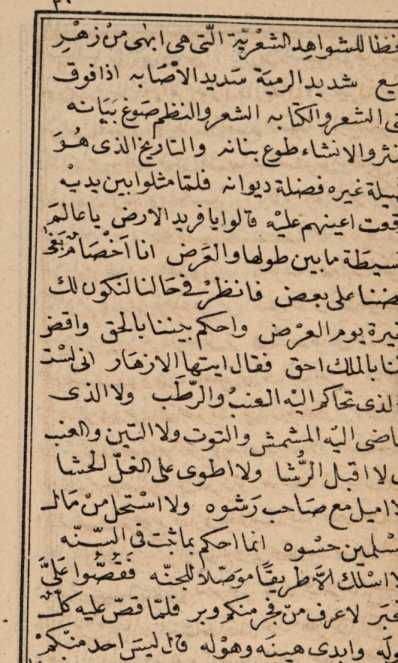 للشواهد الشعرية التي هي ابهى من زهر
شديد الرمية سديد الاصابه اذا فوق
الشعر والكتابه الشعر والنظم صوغ بيانه
والانشاء طوع بنانه والتاريخ الذي هو
غيره فضلة ديوانه فلما مثلوا بين يديه
اعينهم عليه قالوا يا فريد الارض يا عالم
ما بين طولها والعرض انا اخصام
على بعض فانظر في حالنا لتكون لك
يوم العرض واحكم بيننا بالحق واقض
بالملك احق فقال ايتها الازهار اني لست
تحاكم اليه العنب والرطب ولا الذي
اليه المشمش والتوت ولا التين والعنب
لا اقبل الرشا ولا اطوى على الغل الحشا
اميل مع صاحب رشوه ولا استحل من مال
حسوه انما احكم بما ثبت في السنه
اسلك الا طريقا موصلا للجنه فقصوا على
لا عرف من فجر منكم وبر فلما قص عليه كل
وابدى هينه وهوله قال ليس احد منكم